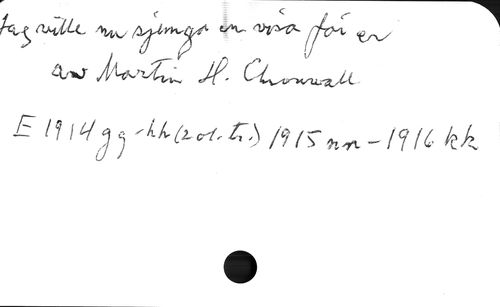 Jag ville nu sjunga en visa för er
av Martin H. Chronwall
E 1914 gg-hh (2 ol. tr.) 1915 nn - 1916 kk